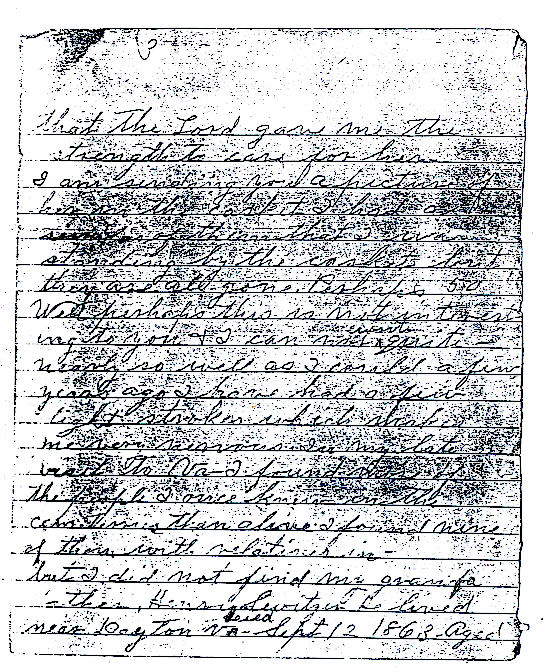 3
that the Lord gave me the
strength to care for her
I am sending you a picture of
her in the casket I had a
of them that was
standing by the casket but
they are all gone Perhaps 50
Well perhaps this is not interest
ing to you & I can not write quite
nearly so well as I could a few
years ago I have had a few
light strokes which makes
me very nervous In my late
visit to Va I found
the people I once knew in the
cemteries than alive I found nine
of them with relatives in
but I did not find my granfa
ther, Henry he lived
near Dayton Va died Sept 12 1863 Aged